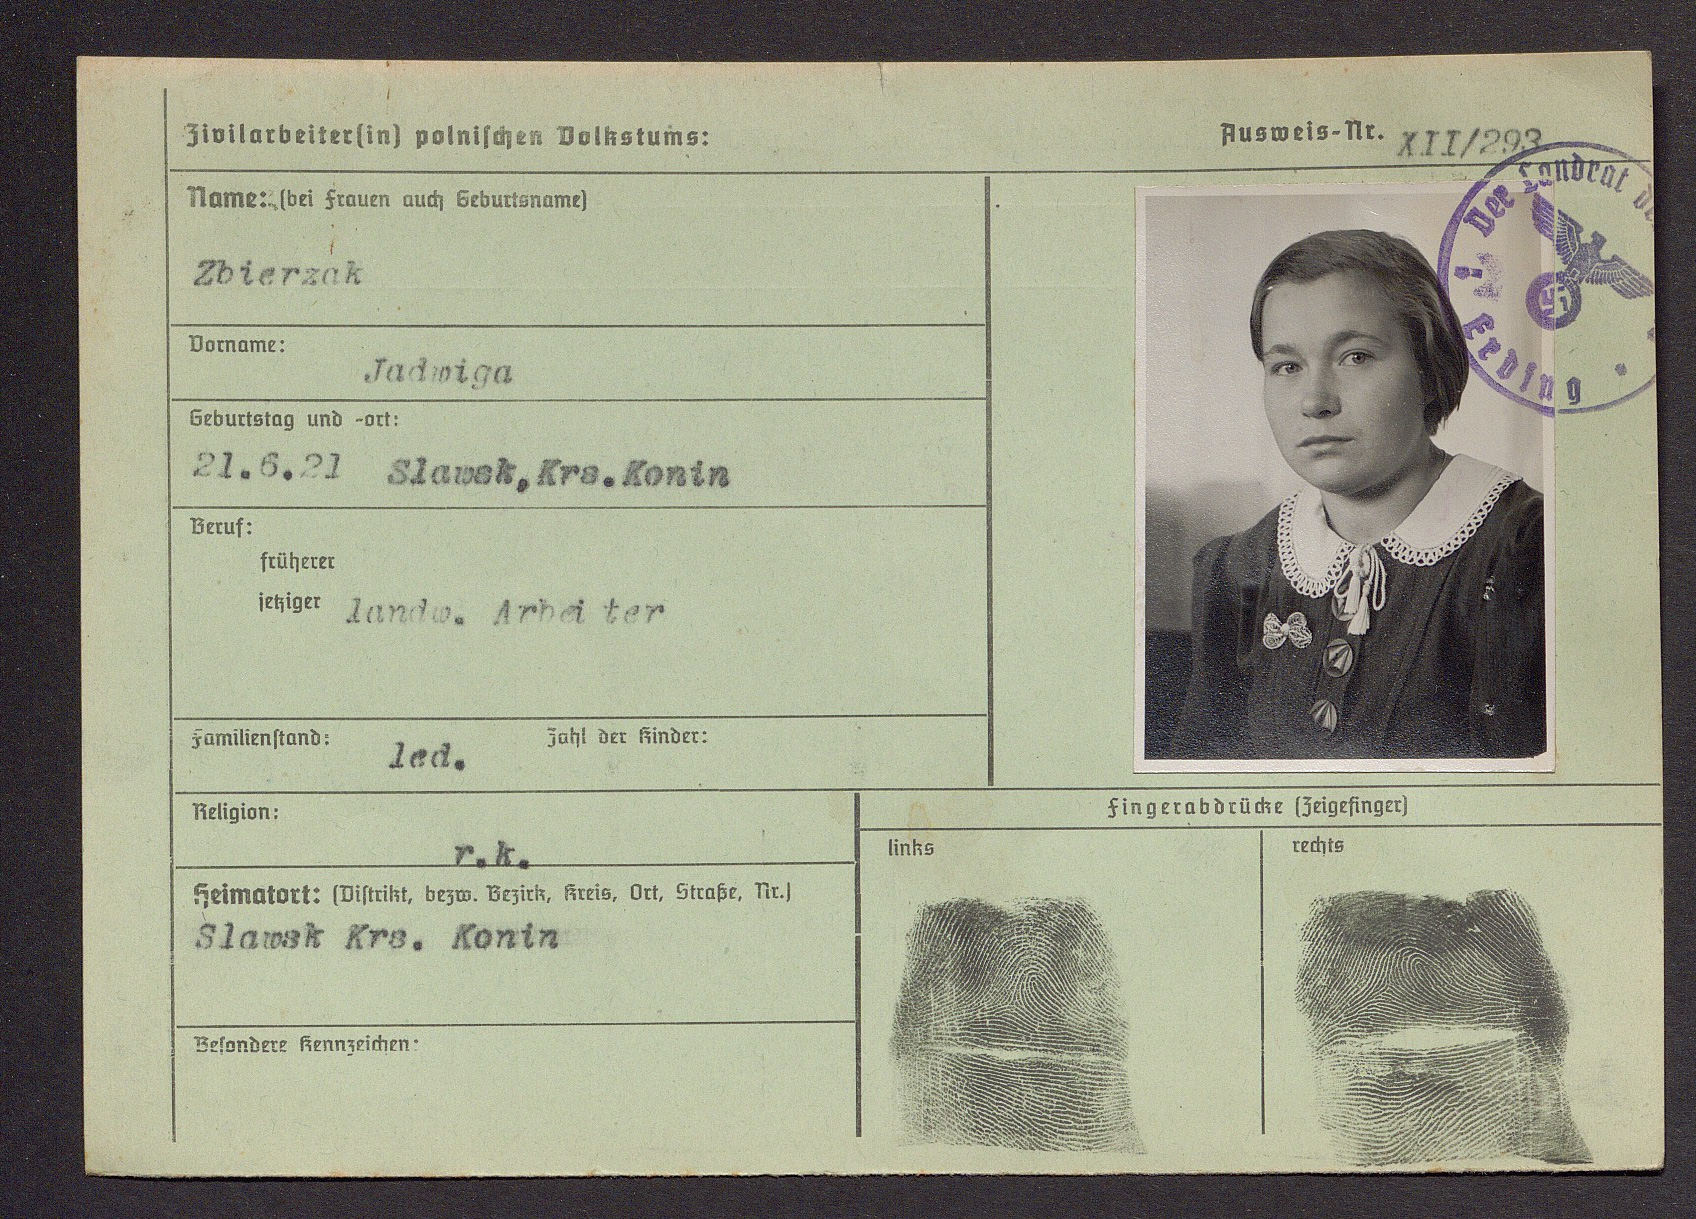 Zivilarbeiter(in) polnischen Volkstums:
Ausweis-Nr. XII/293
Name: (bei Frauen auch Geburtsname)
Zbierzak
Vorname:
Jadwiga
Geburtstag und -ort:
21.6.21 Slawsk, Krs. Konin
Beruf:
früherer
jetziger landw. Arbeiter
Familienstand: led. Zahl der Kinder:
Religion:
r.k.
Heimatort: (Distrikt, bezw. Bezirk, Kreis, Ort, Straße, Nr.)
Slawsk Krs. Konin
Besondere Kennzeichen:
Der Landrat
Erding
Fingerabdrücke (Zeigefinger)
links
rechts